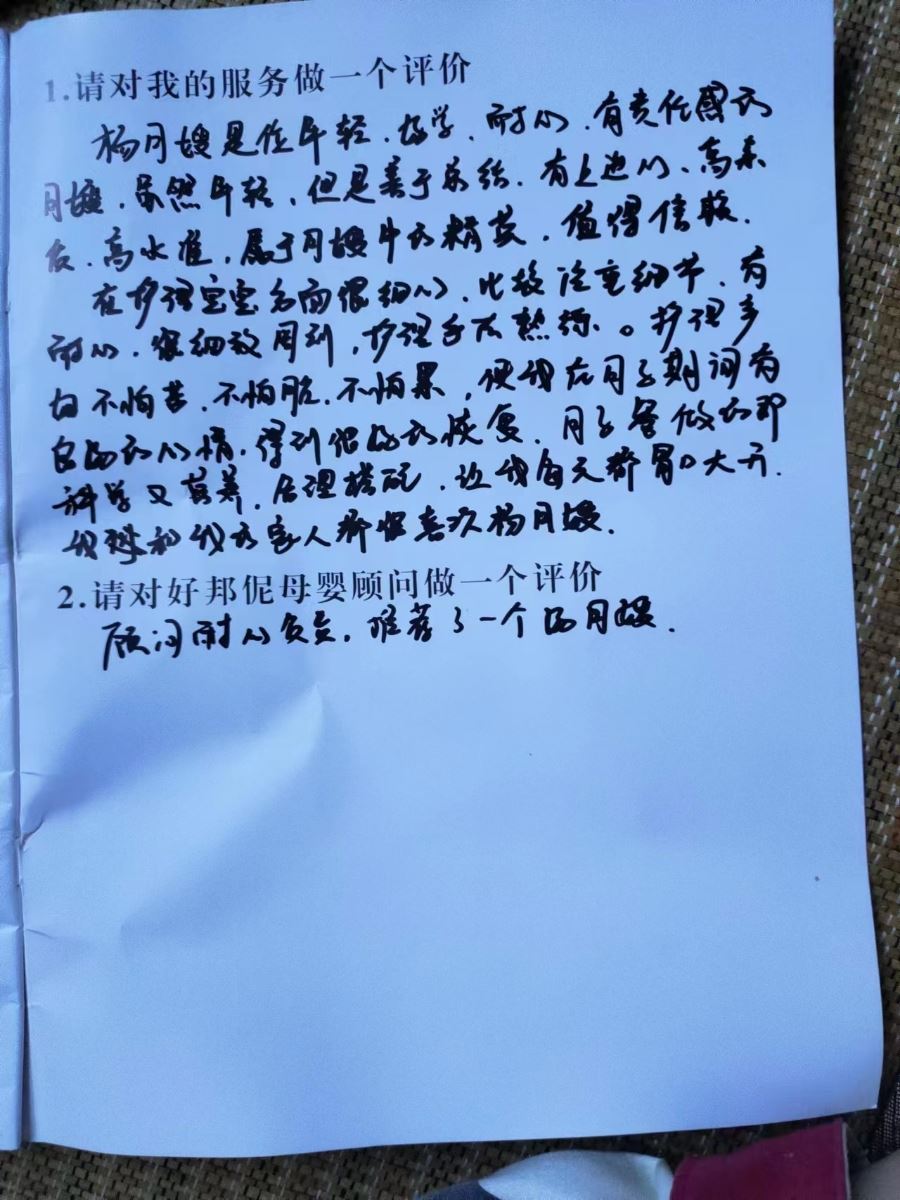 1.请对我的服务做一个评价
杨月嫂是位年轻、好学、耐心、有责任感的
月嫂、虽然年轻、但是善于总结、有上进心、高素
质、高水准,属于月嫂中的精英,值得信赖.
在护理宝宝方面很细心、比较注重细节、有
耐心、很细致周到,护理手法熟练。护理多
不怕苝、不怕脏、不怕累,使我在月子期间有
的心情,得到很好的恢复、月子餐做的即
科学又营养,合理搭配、让我每天都胃口大开.
我和我的家人都很喜欢杨月嫂.
2.请对好邦伲母婴顾问做一个评价
顾问耐心负责,推荐了一个好月嫂.